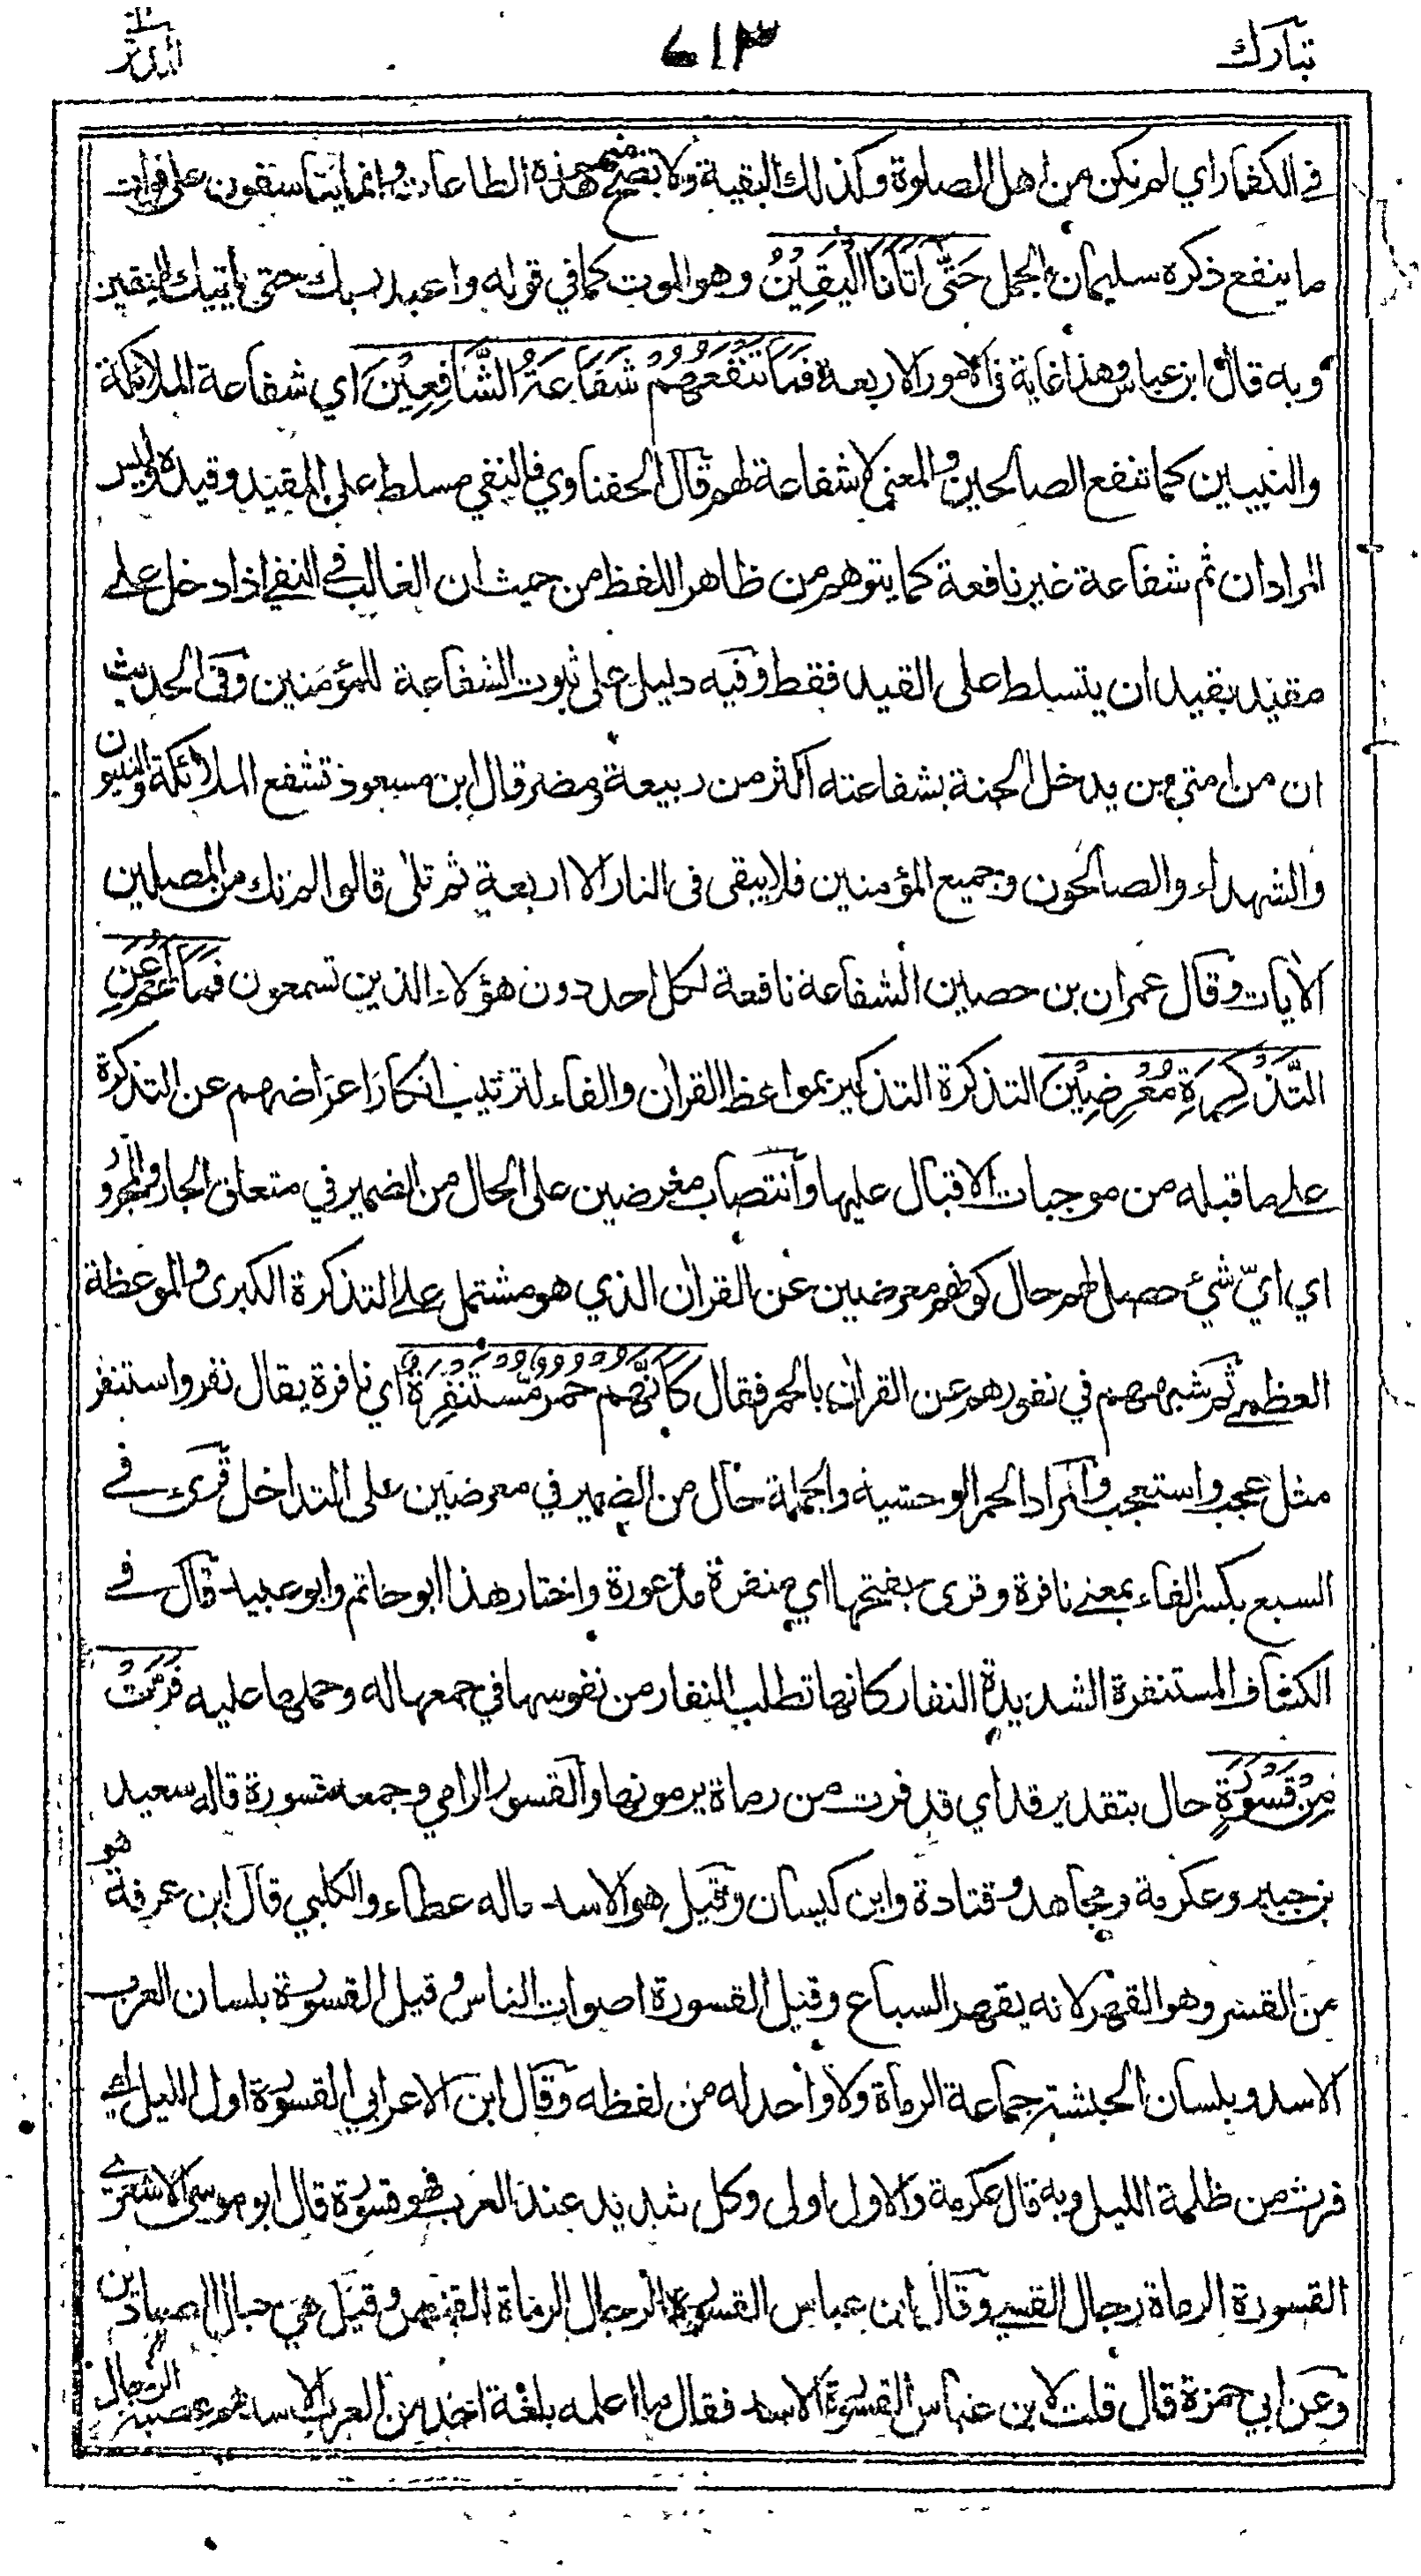 تبارك
٦١٣
المدثر
في الكفار اي لم نكن من اهل الصلوة وكذلك البقية ولا تصح منهم هذه الطاعات وانما يتأسفون على فوات
ما ينفع ذكره سليمان الجمل حَتّٰى اَتَانَا الْيَقِيْنُ وهو الموت كما في قوله واعبد ربك حتى يأتيك اليقين
وبه قال ابن عباس وهذا غاية في الامور الاربعة فَمَا تَنْفَعُهُمْ شَفَاعَةُ الشَّافِعِيْنَ اي شفاعة الملائكة
والنبيين كما تنفع الصالحين والمعنى لا شفاعة لهم قال الحفناوي فالنفي مسلط على المقيد وقيده وليس
المراد ان ثم شفاعة غير نافعة كما يتوهم من ظاهر اللفظ من حيث ان الغالب في النفي اذا دخل على
مقيد بقيد ان يتسلط على القيد فقط وفيه دليل على ثبوت الشفاعة للمؤمنين وفى الحديث
ان من امتي من يدخل الجنة بشفاعته اكثر من ربيعة ومضر قال ابن مسعود تشفع الملائكة والنبيون
والشهداء والصالحون وجميع المؤمنين فلا يبقى فى النار الا اربعة ثم تلى قالوا لم نك من المصلين
الايات وقال عمران بن حصين الشفاعة نافعة لكل احد دون هؤلاء الذين تسمعون فَمَا لَهُمْ عَنِ
التَّذْكِرَةِ مُعْرِضِيْنَ التذكرة التذكير بمواعظ القران والفاء لترتيب انكار اعراضهم عن التذكرة
على ما قبله من موجبات الاقبال عليها وانتصاب معرضين على الحال من الضمير في متعلق الجار والمجرور
اي ايّ شيئ حصل لهم حال كونهم معرضين عن القران الذي هو مشتمل على التذكرة الكبرى والموعظة
العظمى ثم شبههم في نفورهم عن القران بالحمر فقال كَاَنَّهُمْ حُمُرٌ مُّسْتَنْفِرَةٌ اي نافرة يقال نفر واستنفر
مثل عجب واستعجب والمراد الحمر الوحشية والجملة حال من الضمير في معرضين على التداخل قرئ في
السبع بكسر الفاء بمعنى نافرة وقرئ بفتحها اي منفرة مذعورة واختار هذا ابو حاتم وابو عبيد قال في
الكشاف المستنفرة الشديدة النفار كانها تطلب النفار من نفوسها في جمعها له وحملها عليه فَرَّتْ
مِنْ قَسْوَرَةٍ حال بتقدير قد اي قد فرت من رماة يرمونها والقسور الرامي وجمعه قسورة قاله سعيد
بن جبير وعكرمة ومجاهد وقتادة وابن كيسان وقيل هو الاسد قاله عطاء والكلبي قال ابن عرفة هو
من القسر وهو القهر لانه يقهر السباع وقيل القسورة اصوات الناس وقيل القسورة بلسان العرب
الاسد وبلسان الحبشة جماعة الرماة ولا واحد له من لفظه وقال ابن الاعرابي القسورة اول الليل اي
فرت من ظلمة الليل وبه قال عكرمة والاول اولى وكل شديد عند العرب فهو قسورة قال ابو موسى الاشعري
القسورة الرماة رجال القسي وقال ابن عباس القسورة الرجال الرماة القنص وقيل هي حبال الصيادين
وعن ابي حمزة قال قلت لابن عباس القسورة الاسد فقال ما اعلمه بلغة احد من العرب الاسد هم عصبة الرجال